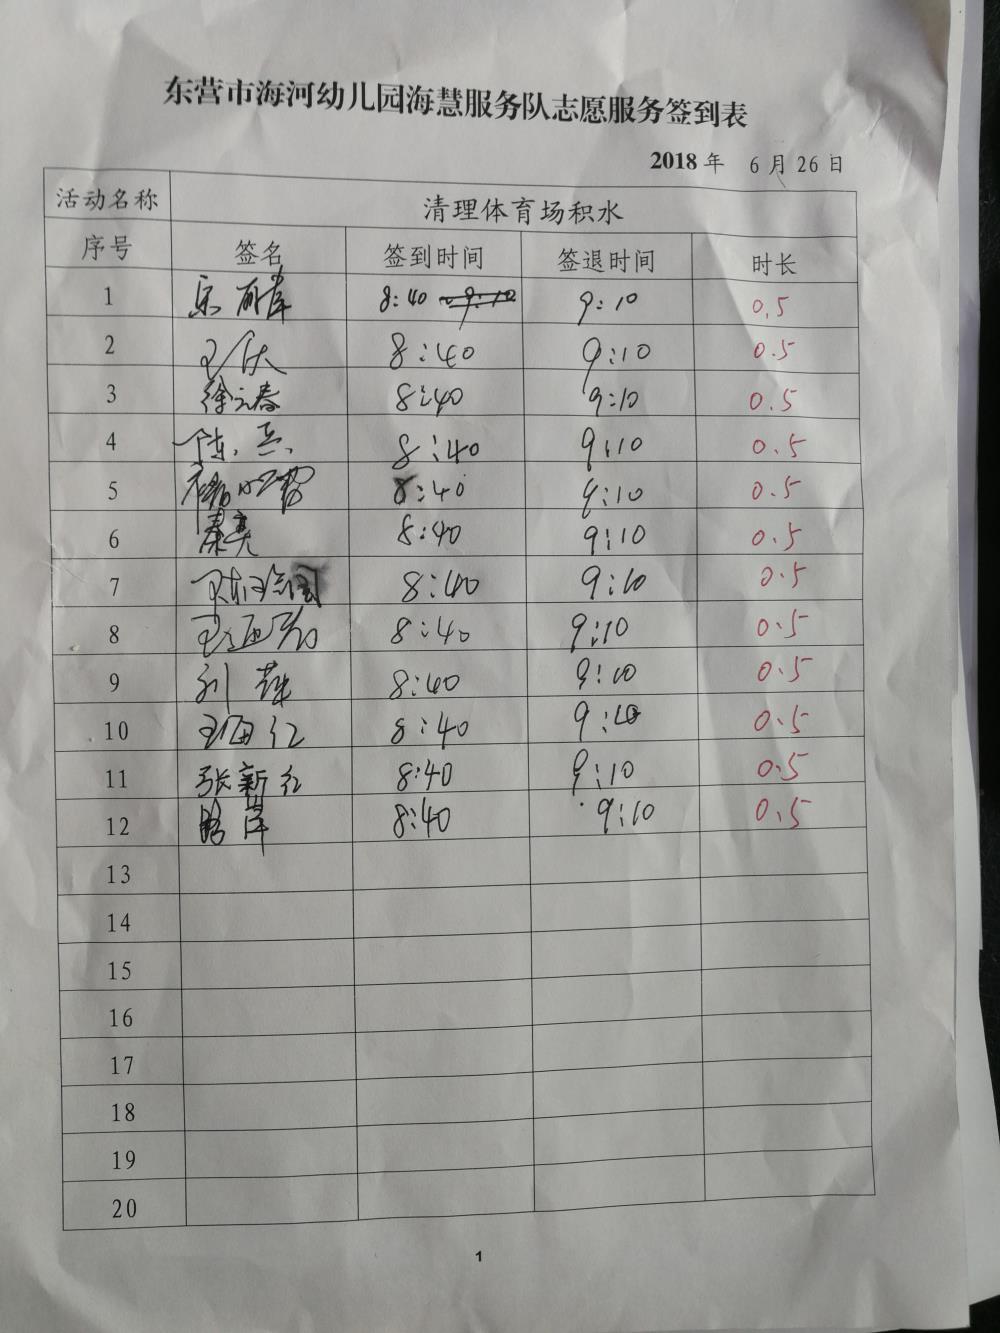 东营市海河幼儿园海慧服务队志愿服务签到表
2018 年 6 月 26 日
活动名称 清理体育场积水
序号 签名 签到时间 签退时间 时长
1 8:40 9:10 0.5
2 8:40 9:10 0.5
3 徐元春 8:40 9:10 0.5
4 8:40 9:10 0.5
5 8:40 9:10 0.5
6 秦亮 8:40 9:10 0.5
7 8:40 9:10 0.5
8 8:40 9:10 0.5
9 刘 8:40 9:10 0.5
10 王海红 8:40 9:10 0.5
11 张新红 8:40 9:10 0.5
12 8:40 9:10 0.5
13
14
15
16
17
18
19
20
1